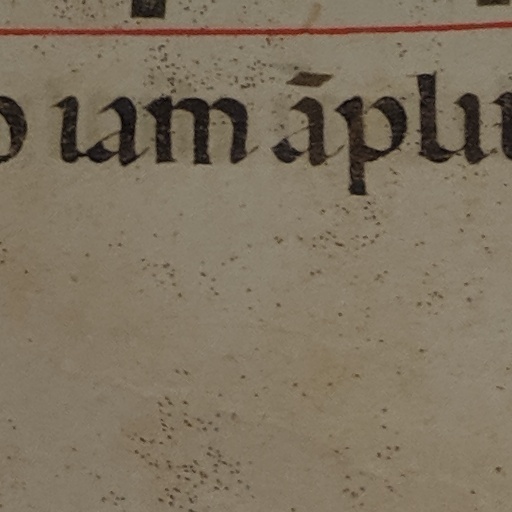 o iam āpliu